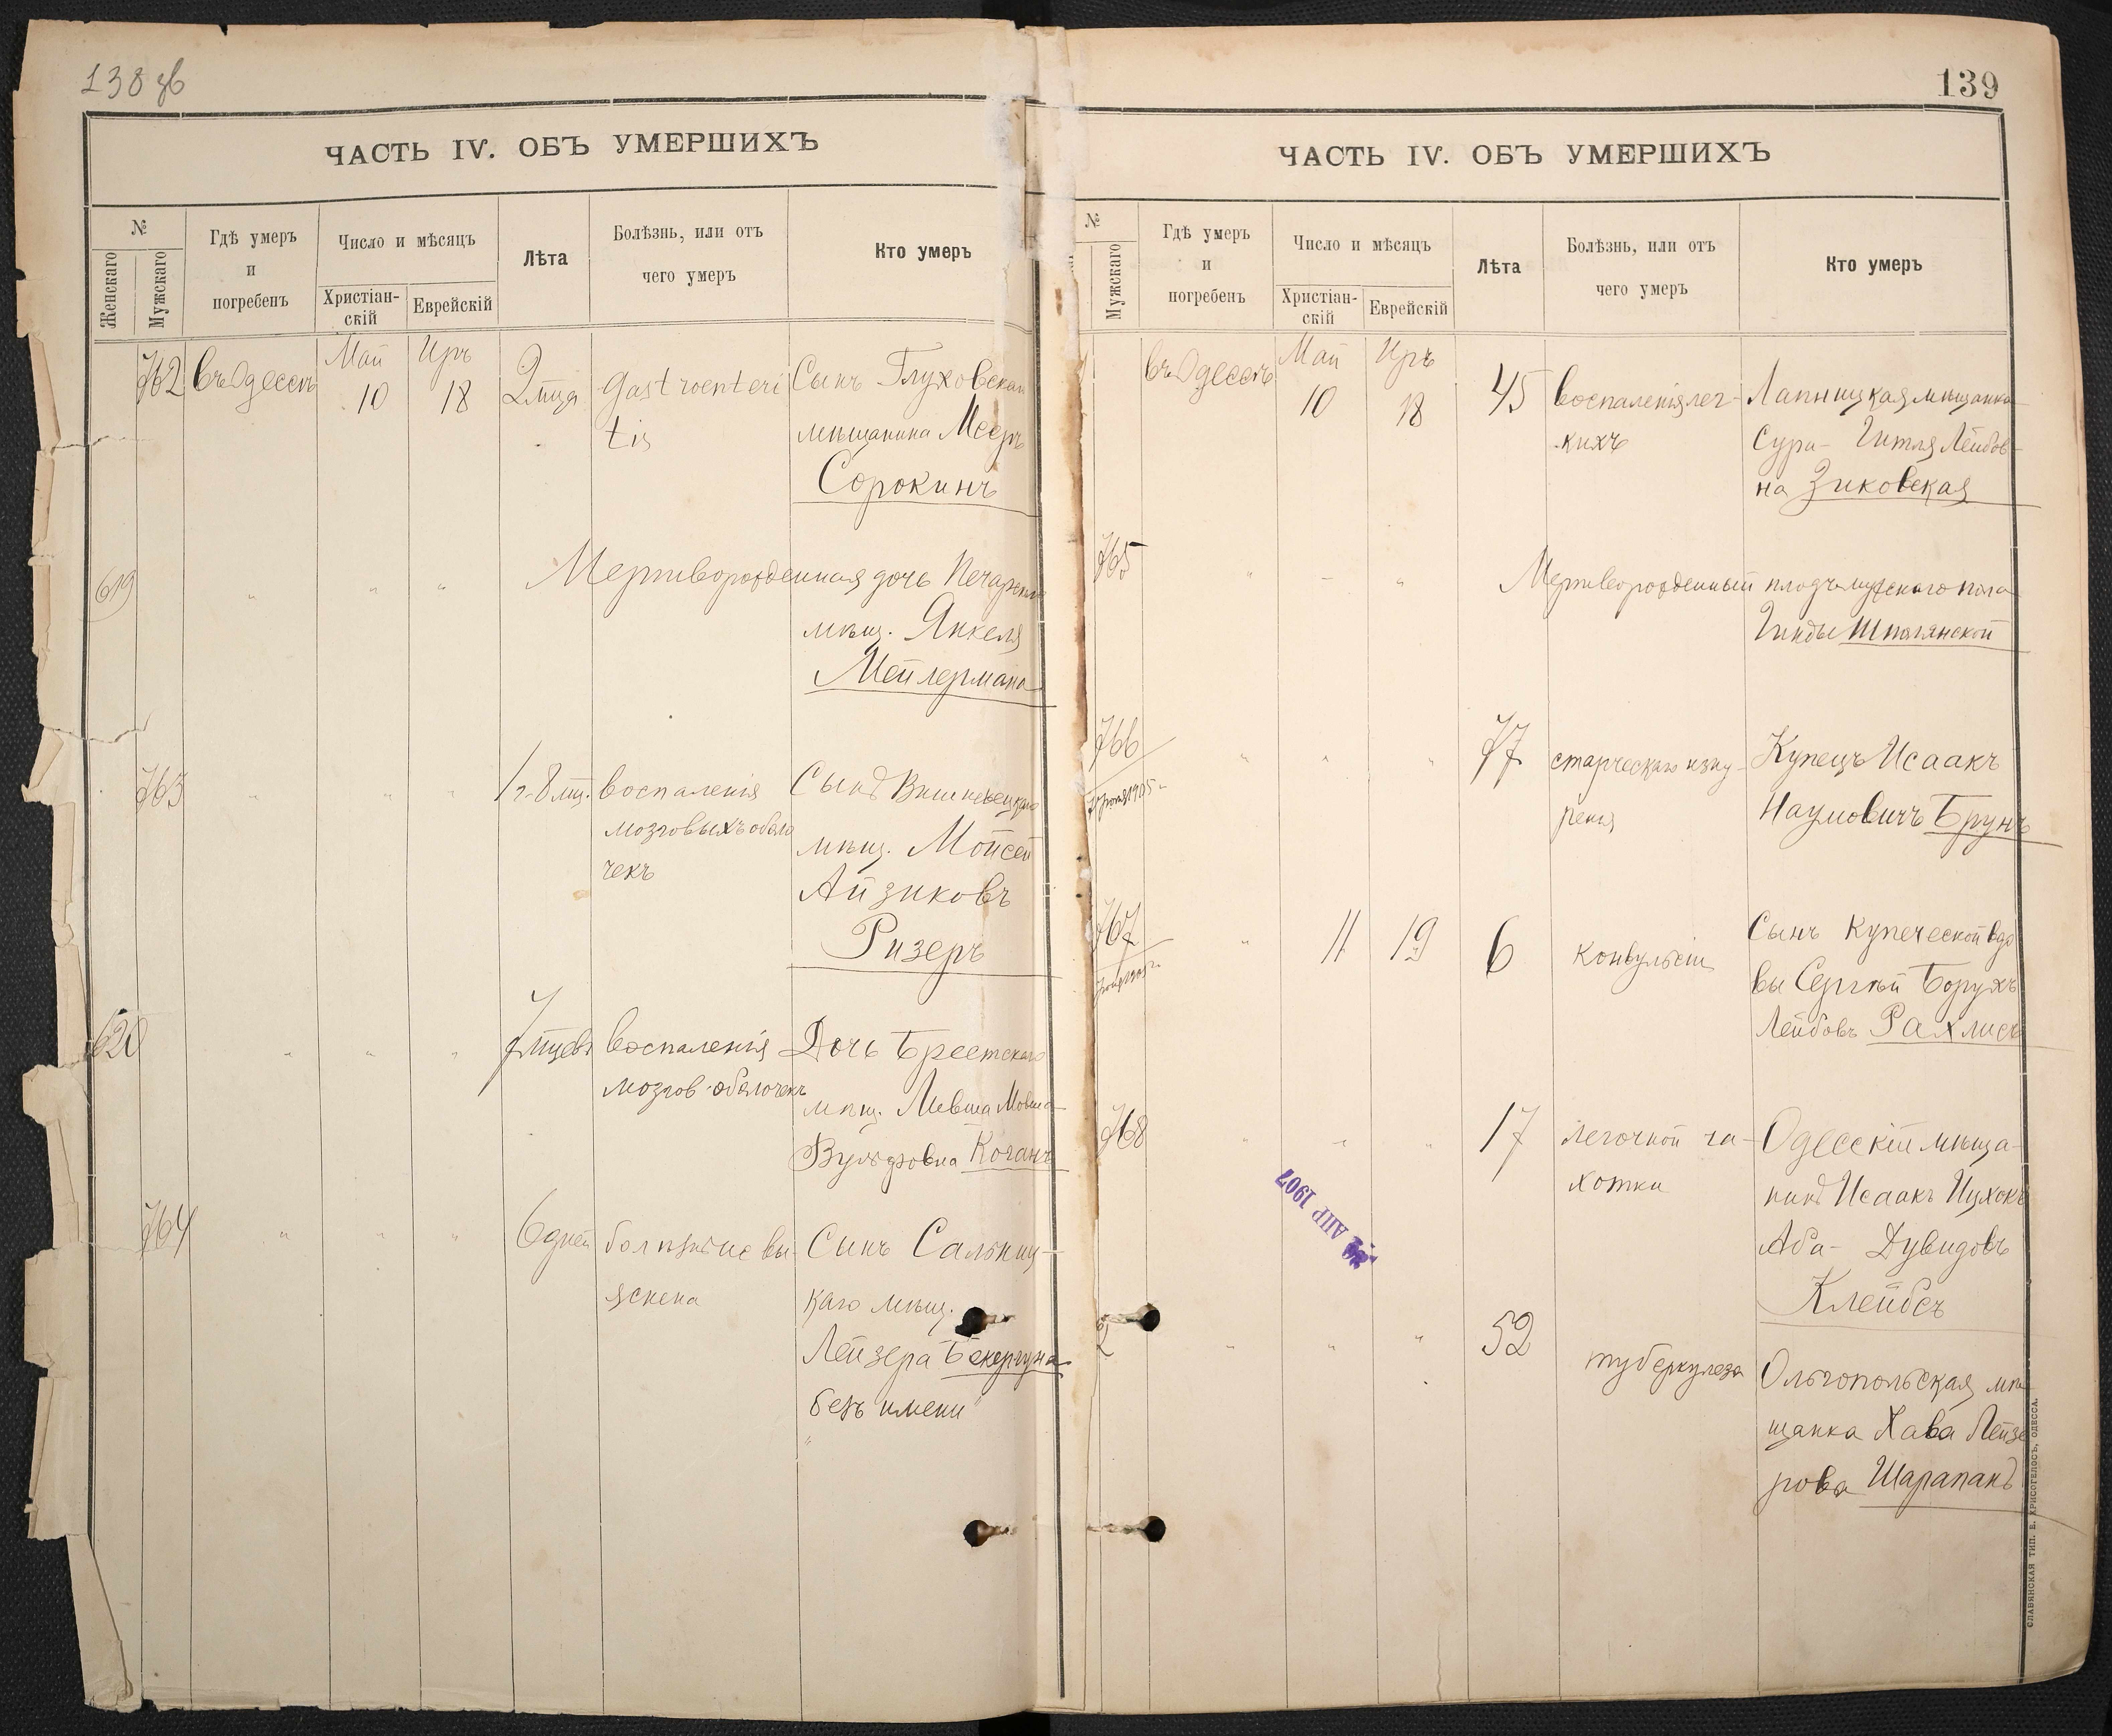 138 зв
ЧАСТЬ IV. ОБЪ УМЕРШИХЪ
№
Женскаго
Мужскаго
Гдѣ умеръ
и
погребенъ
Число и мѣсяцъ
Христіан-
скій
Еврейскій
Лѣта
Болѣзнь, или отъ
чего умеръ
Кто умеръ
762 въ Одессѣ Май 10 Иръ 18 2 мца Gastroenteri
tis
Сынъ Глуховскаго
мѣщанина Мееръ
Сорокинъ
619 " " " Мертворожденная дочь
мѣщ. Янкеля
Мейлермана
763 " " " 1 г. 8 мц. воспаленія
мозговыхъ оболо
чекъ
Сынъ Вишневецкаго
мѣщ. Мойсей
Айзиковъ
Ризеръ
620 " " " 7 мцевъ воспаленія
мозгов. оболочекъ
Дочь Брестскаго
мѣщ.
Вульфовна Коганъ
764 " " " 6 дней
Сынъ Сальниц-
каго мѣщ.
Лейзера
безъ имени
139
ЧАСТЬ IV. ОБЪ УМЕРШИХЪ
№
Мужскаго
Гдѣ умеръ
и
погребенъ
Число и мѣсяцъ
Христіан-
скій
Еврейскій
Лѣта
Болѣзнь, или отъ
чего умеръ
Кто умеръ
въ Одессѣ Май 10 Иръ 18 45 воспаленія лег-
кихъ
Лапницкая мѣщанка
Сура- Гитля Лейбов-
на Зиковская
765 " – " Мертворожденный плодъ мужского пола
Гинды Шполянской
766 " " " 77 старческаго изну-
ренія
Купецъ Исаакъ
Наумовичъ Брунъ
767 " 11 19 6 конвульсіи
Сынъ купеческой вдо
вы Сергѣй Борухъ
Лейбовъ Рахлисъ
768 " " " 17 легочной ча-
хотки
Одесскій мѣща-
нинъ Исаакъ Ицхокъ
Аба- Дувидовъ
Клейбсъ
АПР 1907
2 " " " 52 туберкулеза
Ольгопольская мѣ-
щанка Хава Лейзе
рова Шарапанъ
СЛАВЯНСКАЯ ТИП. Е. ХРИСОГЕЛОСЪ, ОДЕССА.